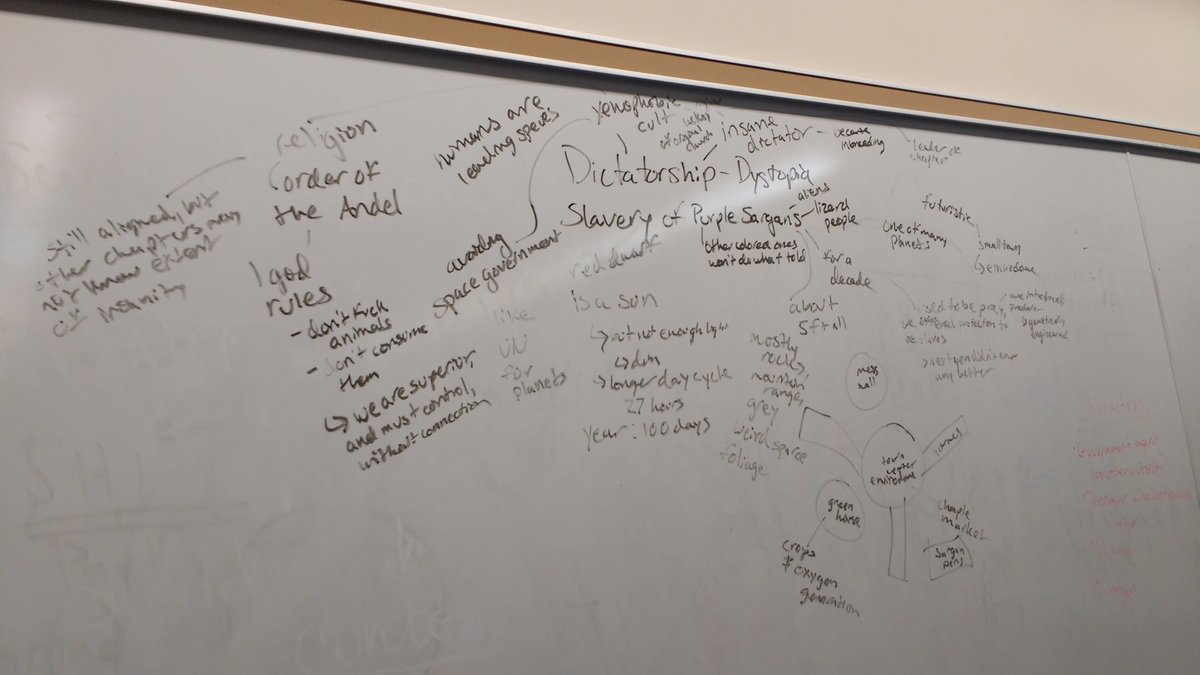 religion
(order of
the Andel
Still aligned, but
other chapters may
not know extent
of insanity
1 god
rules
- don't fuck
animals
- don't consume
them
↳ we are superior,
and must control,
without connection
humans are
leading species
xenophobic
cult
avoiding
space government
like
UN
for
planets
insane
dictator
because
inbreeding
leader of
chapter
Dictatorship - Dystopia
Slavery of Purple Sargans
aliens
lizard
people
other colored ones
won't do what told
for a
decade
futuristic
one of many
planets
small town
↳ envirodome
used to be prey,
we offered protection to
be slaves
we introduced
predator
genetically
engineered
→ next gen didn't know
any better
red dwarf
is a sun
↳ but not enough light
↳ dim
↳ longer day cycle
27 hours
Year: 100 days
about
5ft all
mostly
rocks,
mountain
ranges,
grey
weird sparse
foliage
mess
hall
town
center
envirodome
homes
green
house
crops
* oxygen
generation
chaple
market
Sargan
pens
Characters
Government agent